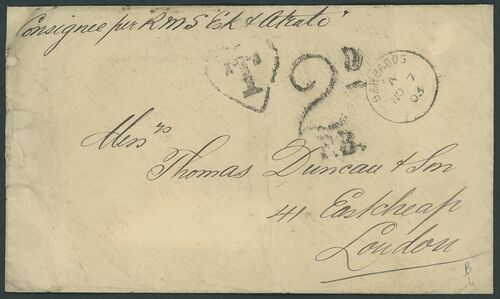 Consignee per "R.M.S "Esk & Atrato"
T
2D
F.B.
BARBADOS
A
NO 7
03
Mess rs
Thomas Duncan & Son
41 Eastcheap
London
B
L